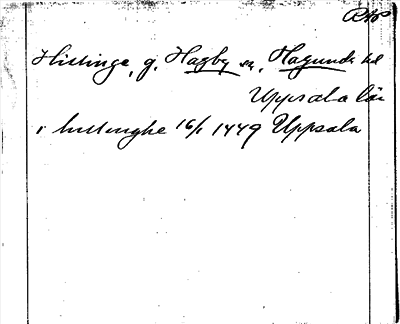 RAP
Hillinge, g. Hagby sn, Hagunda hd
Uppsala län
i hullinghe 16/1 1449 Uppsala